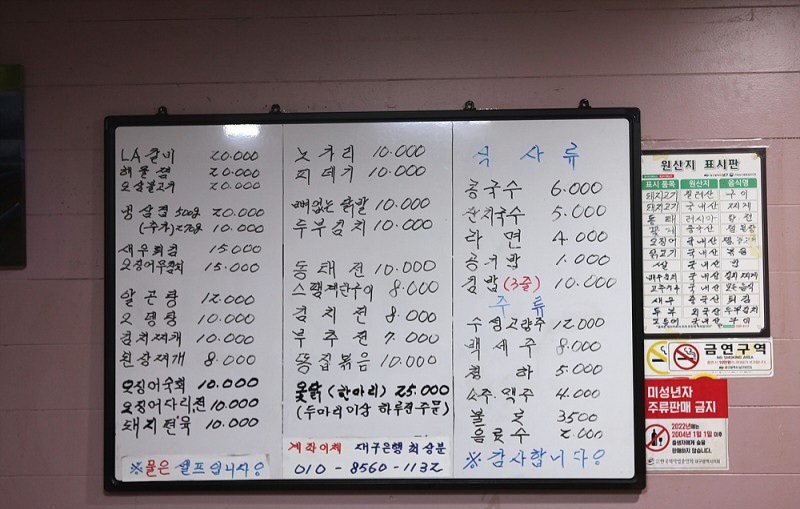 LA갈비 20.000
해물찜 20.000
오삼불고기 20.000
냉삼겹 500g 20.000
(추가) 270g 10.000
새우튀김 15.000
오징어무침 15.000
알곤탕 12.000
오뎅탕 10.000
김치찌개 10.000
된장찌개 8.000
오징어숙회 10.000
오징어다리전 10.000
돼지편육 10.000
※물은 셀프입니다
노가리 10.000
찌데기 10.000
뼈없는 닭발 10.000
두부김치 10.000
동태전 10.000
스팸계란구이 8.000
김치전 8.000
부추전 7.000
똥집볶음 10.000
옻닭 (한마리) 25.000
(두마리이상 하루전 주문)
계좌이체 대구은행 최상분
010-8560-1132
식사류
콩국수 6.000
잔치국수 5.000
라면 4.000
공기밥 1.000
김밥 (3줄) 10.000
주류
수정고량주 12.000
백세주 8.000
청하 5.000
소주.맥주 4.000
불로 3500
음료수 2.000
※감사합니다
원산지 표시판
표시 품목 원산지 음식명
돼지고기 국내산 찌개
동태 러시아
오징어 국내산
닭고기 국내산 볶음
쌀 국내산 밥
배추김치 국내산 김치찌개
고추가루 국내산 모든음식
새우 중국산 튀김
두부 외국산 두부김치
금연구역
NO SMOKING AREA
미성년자
주류판매 금지
2022년에는
2004년 1월 1일 이후
출생자에게 술을
판매하지 않습니다.